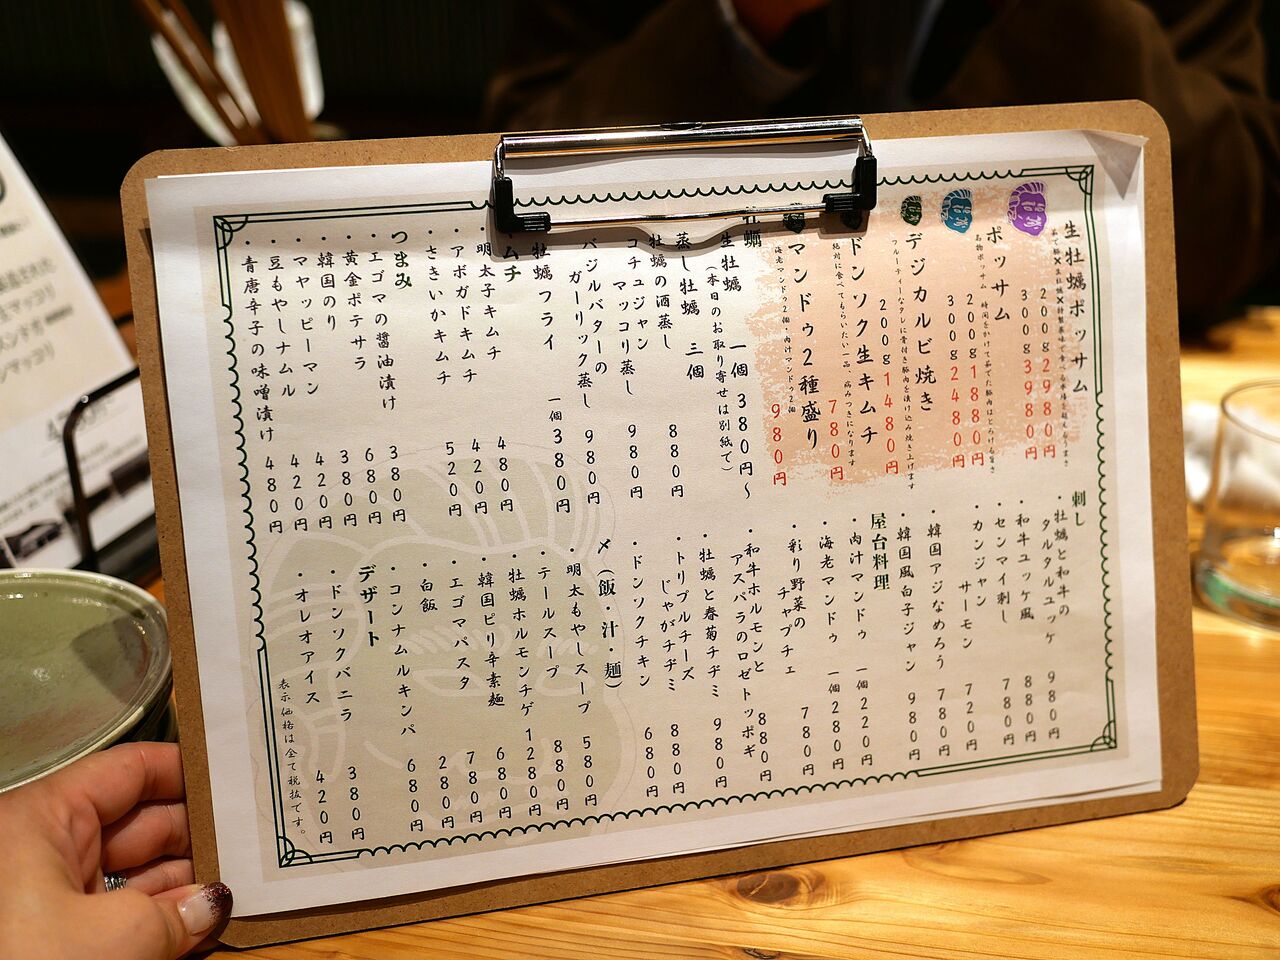 生牡蠣ポッサム
茹で豚×生牡蠣×特製薬味
200g 2980円
300g 3980円
ポッサム
名物ポッサム 時間をかけて茹でた豚肉はとろける旨さ
200g 1880円
300g 2480円
デジカルビ焼き
フルーティーなタレに骨付き豚肉を漬け込み焼き上げます
200g 1480円
ドンソク生キムチ
絶対に食べてもらいたい一品、病みつきになります
780円
マンドゥ2種盛り
海老マンドゥ2個・肉汁マンドゥ2個
980円
牡蠣
生牡蠣 一個 380円〜
(本日のお取り寄せは別紙で)
蒸し牡蠣 三個 880円
牡蠣の酒蒸し
コチュジャン
マッコリ蒸し 980円
バジルバターの
ガーリック蒸し 980円
牡蠣フライ 一個 380円
ムチ
明太子キムチ 480円
・アボガドキムチ 420円
・さきいかキムチ 520円
つまみ
・エゴマの醤油漬け 380円
・黄金ポテサラ 680円
・韓国のり 380円
・マヤッピーマン 420円
・豆もやしナムル 420円
・青唐辛子の味噌漬け 480円
刺し
・牡蠣と和牛の
タルタルユッケ 980円
・和牛ユッケ風 880円
・センマイ刺し 780円
・カンジャン
サーモン 720円
・韓国アジなめろう 780円
・韓国風白子ジャン 980円
屋台料理
・肉汁マンドゥ 一個 220円
・海老マンドゥ 一個 280円
・彩り野菜の
チャプチェ 780円
・和牛ホルモンと
アスパラのロゼトッポギ 880円
・牡蠣と春菊チヂミ 980円
・トリプルチーズ
じゃがチヂミ 880円
・ドンソクチキン 680円
〆(飯・汁・麺)
・明太もやしスープ 580円
・テールスープ 880円
・牡蠣ホルモンチゲ 1280円
・韓国ピリ辛素麺 680円
・エゴマパスタ 780円
・白飯 280円
・コンナムルキンパ 680円
デザート
・ドンソクバニラ 380円
・オレオアイス 420円
表示価格は全て税抜です。